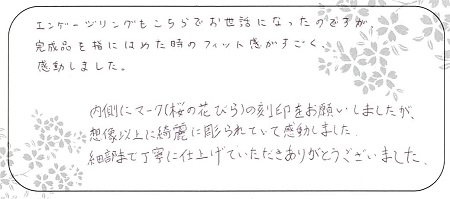 エンゲージリングもこちらでお世話になったのですが、
完成品を指にはめた時のフィット感がすごく、
感動しました。
内側にマーク(桜の花びら)の刻印をお願いしましたが、
想像以上に綺麗に彫られていて感動しました。
細部まで丁寧に仕上げていただきありがとうございました。